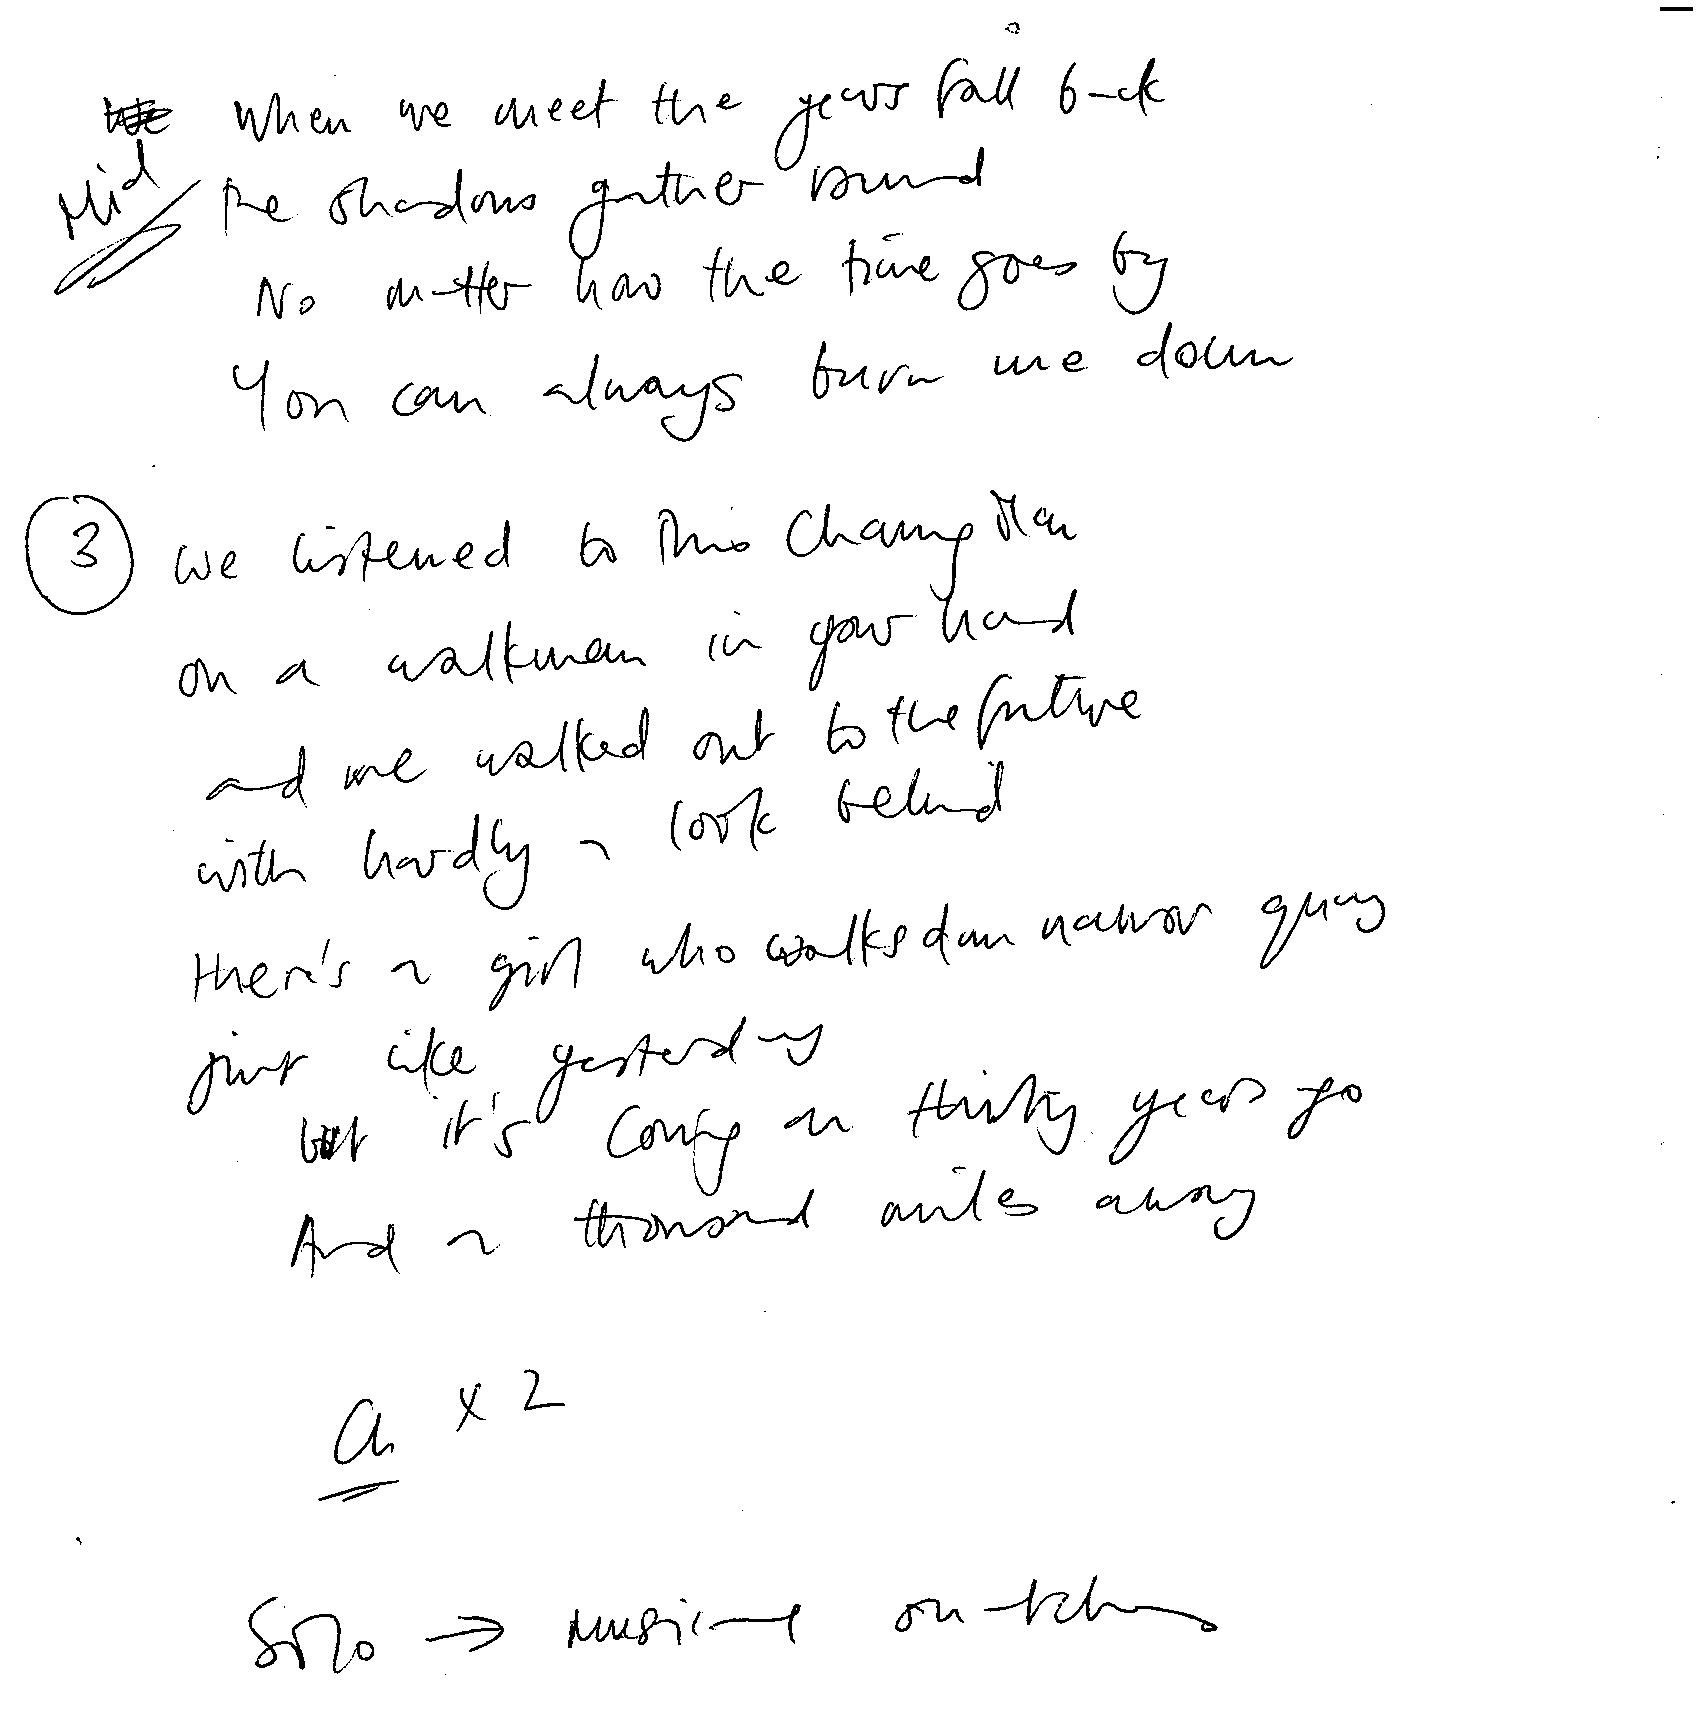 When we meet the years fall back
Mid the shadows gather round
No matter how the time goes by
You can always burn me down
3 we listened to This Charming Man
on a walkman in your hand
and we walked out to the future
with hardly a look behind
there's a girl who walks down narrow quay
just like yesterday
but it's coming on thirty years ago
And a thousand miles away
Ch x 2
Solo → musical